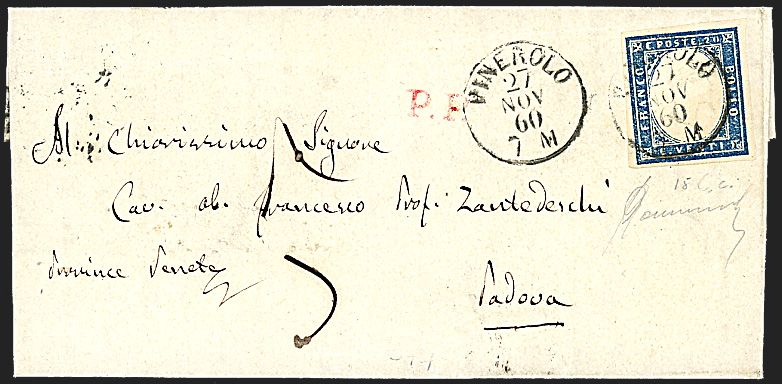 P.P.
PINEROLO
27
NOV
60
7 M
C. POSTE 20
FRANCO
BOLLO
C. VENTI
27
NOV
60
M
Al Chiarissimo Signore
Cav. ab. Francesco Prof: Zantedeschi
Province Venete
Padova